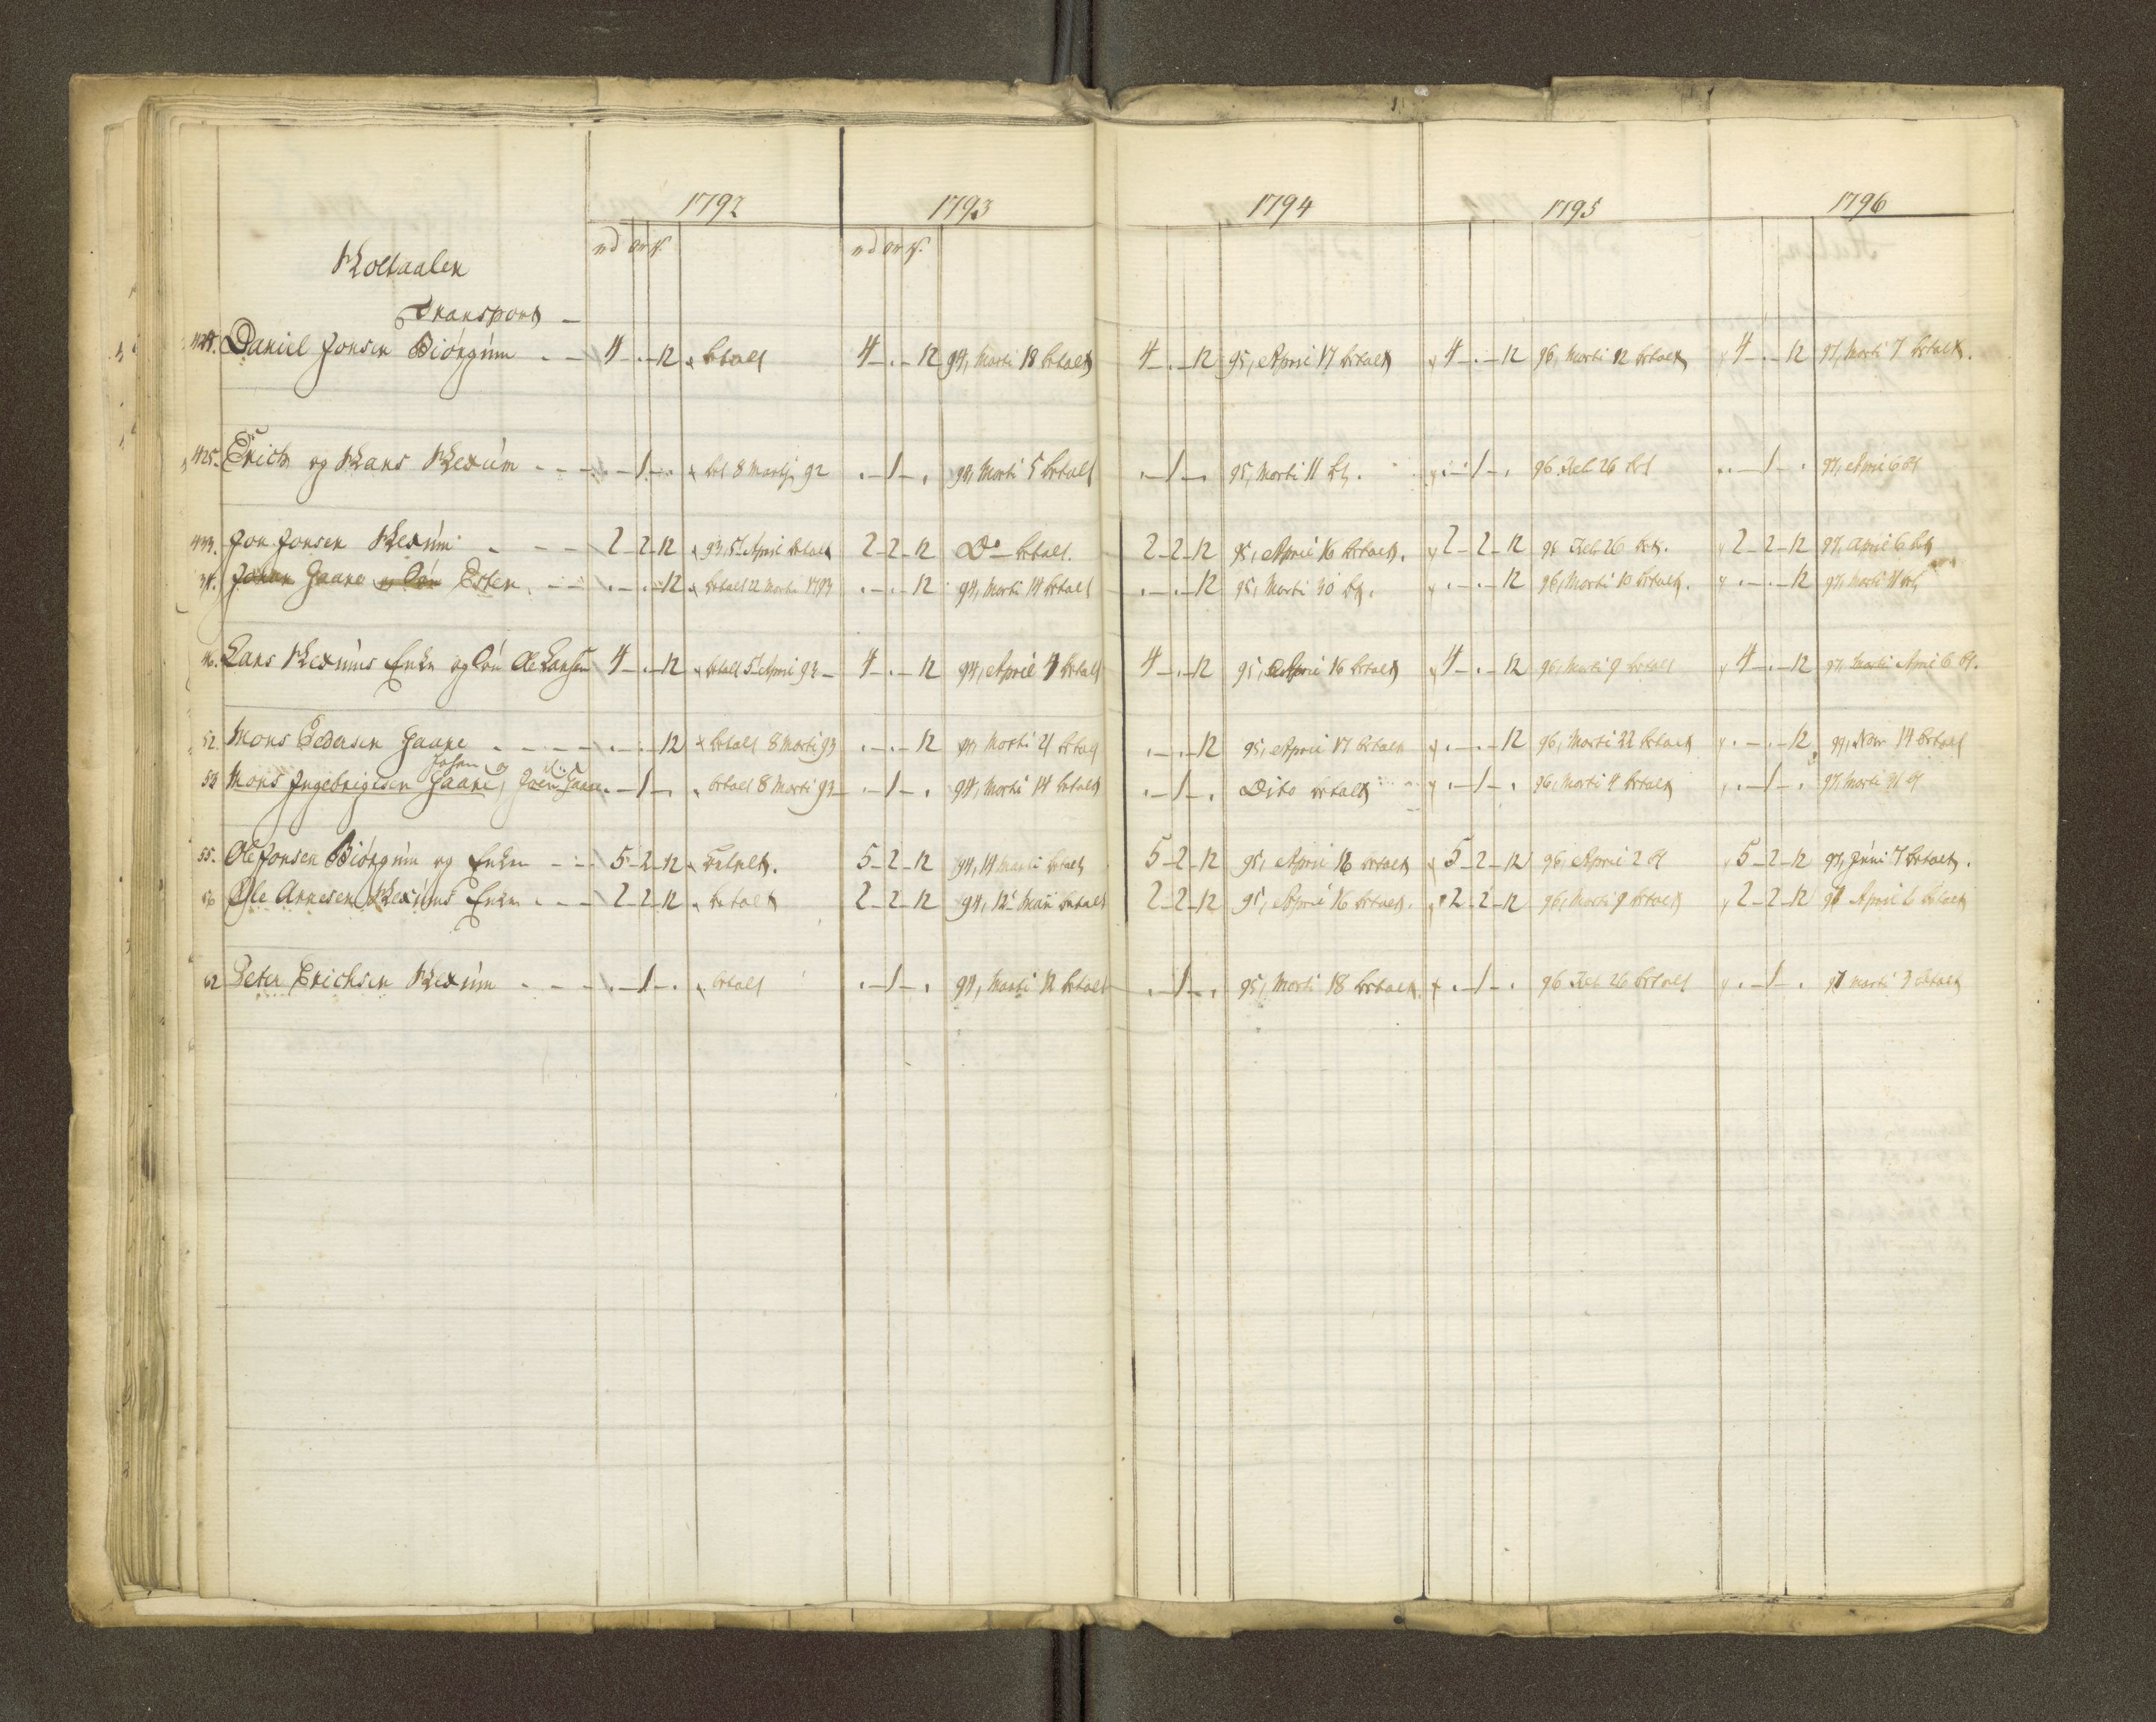 1792 1793 1794 1795 1796
rd ort s. rd ort s.
Holtaalen
Transport _
424. Daniel Jonsen Biörgum - - 4 _ . _ 12 betalt 4 _ . _ 12 94, Marti 18 betalt 4 _ . _ 12 95, April 17 betalt 4 _ . _ 12 96, Marti 12 betalt 4 _ . _ 12 97, Marti 7 betalt.
425. Erich og Hans Hexum - - - . _ 1 _ . bet 8 Martj 92 . _ 1 _ . 94, Marti 5 betalt . _ 1 _ . 95, Marti 11 bt. . _ 1 _ . 96 Feb 26 bet . _ 1 _ . 97, April 6 bt
433. Jon Jonsen Hexum - - - 2 _ 2 _ 12 93, 5t April betalt 2 _ 2 _ 12 Do betalt. 2 _ 2 _ 12 95, April 16 betalt. 2 _ 2 _ 12 96 Feb 26 bet. 2 _ 2 _ 12 97, April 6 bet
34. Johan Gaare og Sön Esten - - . _ . _ 12 betalt 22 Martii 1793 . _ . _ 12 94, Marti 14 betalt . _ . _ 12 95, Marti 30 bt. . _ . _ 12 96, Marti 10 betalt. . _ . _ 12 97, Marti 11 bet
46. Lars Hexums Enke og Sön Ole Larsen 4 _ . _ 12 betalt 5t April 93 _ 4 _ . _ 12 94, April 4 betalt 4 _ . _ 12 95, April 16 betalt 4 _ . _ 12 96, Marti 9 betalt 4 _ . _ 12 97, Marti April 6 bt.
52. Mons Pedersen Gaare - - - . _ . _ 12 betalt 8 Marti 93 . _ . _ 12 94, Marti 21 betalt . _ . _ 12 95, April 17 betalt . _ . _ 12 96, Marti 22 betalt . _ . _ 12 97, Novr 14 betalt
Johan og
53 Mons Ingebrigtsen Gaare, Joen Gaare . _ 1 _ . betalt 8 Marti 93 _ . _ 1 _ . 94, Marti 14 betalt . _ 1 _ . Dito betalt . _ 1 _ . 96, Marti 4 betalt . _ 1 _ . 97, Marti 31 bt
55. Ole Jonsen Biörgum og Enken - - 5 _ 2 _ 12 betalt. 5 _ 2 _ 12 94, 14 Marti betalt 5 _ 2 _ 12 95, April 16 betalt 5 _ 2 _ 12 96, April 2 bt 5 _ 2 _ 12 97, Juni 7 betalt.
56 Ole Arnesen Hexums Enke - - - 2 _ 2 _ 12 betalt 2 _ 2 _ 12 94, 12t Marti betalt 2 _ 2 _ 12 95, April 16 betalt. 2 _ 2 _ 12 96, Marti 9 betalt 2 _ 2 _ 12 97 April 6 betalt
62 Peter Erichsen Hexum - - - . _ 1 _ . betalt . _ 1 _ . 94, Marti 12 betalt . _ 1 _ . 95, Marti 18 betalt. . _ 1 _ . 96 Feb 26 betalt . _ 1 _ . 97 Marti 3 betalt